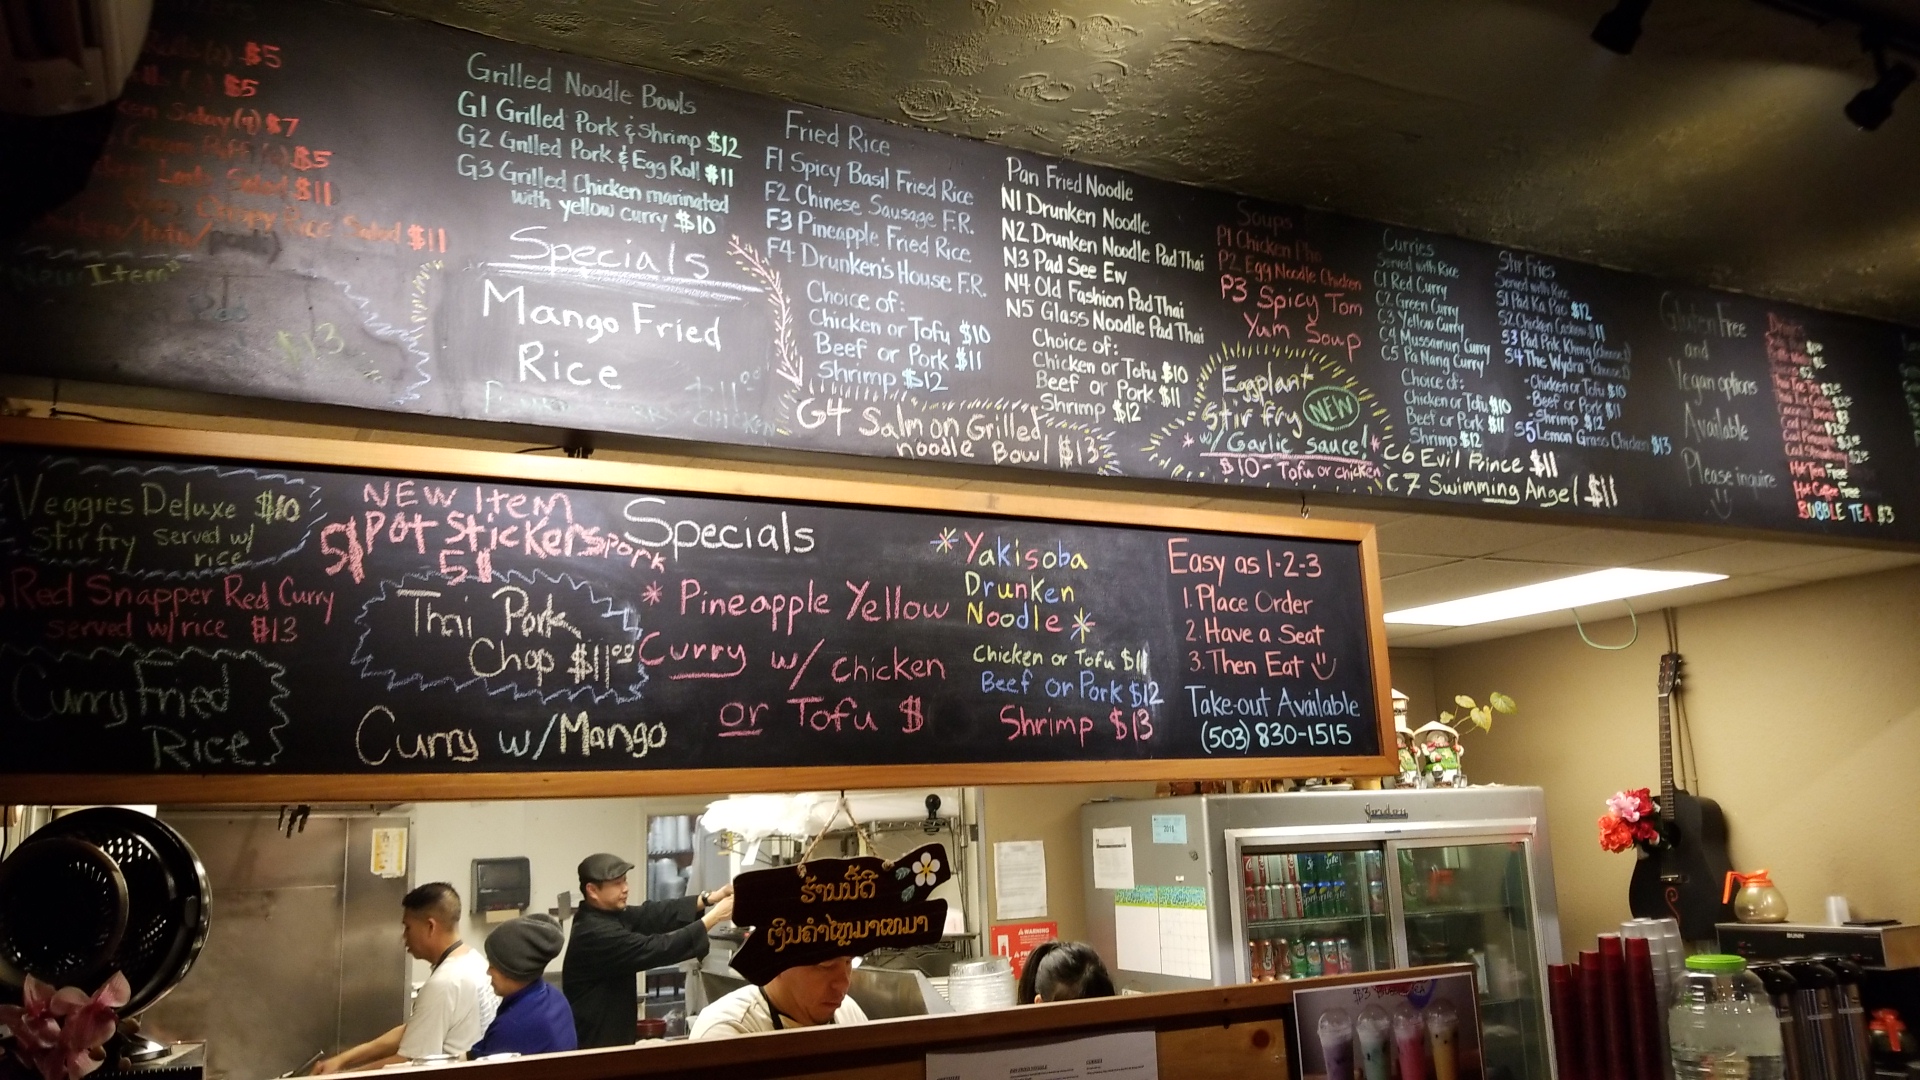 $5
$5
Satay(4) $7
$5
Salad $11
Crispy Rice Salad $11
New Item
$13
Grilled Noodle Bowls
G1 Grilled Pork & Shrimp $12
G2 Grilled Pork & Egg Roll $11
G3 Grilled Chicken marinated
with yellow curry $10
Specials
Mango Fried
Rice
Fried Rice
F1 Spicy Basil Fried Rice
F2 Chinese Sausage F.R.
F3 Pineapple Fried Rice
F4 Drunken's House F.R.
Choice of:
Chicken or Tofu $10
Beef or Pork $11
Shrimp $12
G4 Salmon Grilled
noodle Bowl $13
Pan Fried Noodle
N1 Drunken Noodle
N2 Drunken Noodle Pad Thai
N3 Pad See Ew
N4 Old Fashion Pad Thai
N5 Glass Noodle Pad Thai
Choice of:
Chicken or Tofu $10
Beef or Pork $11
Shrimp $12
Soups
P1 Chicken Pho
P2 Egg Noodle Chicken
P3 Spicy Tom
Yum Soup
Eggplant
Stir fry NEW
w/ Garlic sauce!
$10 - Tofu or chicken
Curries
Served with Rice
C1 Red Curry
C2 Green Curry
C3 Yellow Curry
C4 Mussamun Curry
C5 Pa Nang Curry
Choice of:
Chicken or Tofu $10
Beef or Pork $11
Shrimp $12
C6 Evil Prince $11
C7 Swimming Angel $11
Stir Fries
Served with Rice
S1 Pad Ka Pao $12
S2 Chicken Cashew $11
S3 Pad Prik Khing
S4 The Wydra
-Chicken or Tofu $10
-Beef or Pork $11
-Shrimp $12
S5 Lemon Grass Chicken $13
Gluten Free
and
Vegan options
Available
Please inquire
Drinks
Hot Tea Free
Hot Coffee Free
BUBBLE TEA $3
Veggies Deluxe $10
stir fry served w/
rice
Red Snapper Red Curry
served w/rice $13
Curry Fried
Rice
NEW Item
5/Pot Stickers pork
5$
Thai Pork
Chop $11.00
Curry w/Mango
Specials
* Pineapple Yellow
Curry w/ chicken
or Tofu $
*Yakisoba
Drunken
Noodle*
Chicken or Tofu $11
Beef or Pork $12
Shrimp $13
Easy as 1-2-3
1. Place Order
2. Have a Seat
3. Then Eat
Take-out Available
(503) 830-1515
ຮ້ານນີ້ດີ
ເງິນຄຳໄຫຼມາເທມາ
WARNING
2018
BUNN
$3